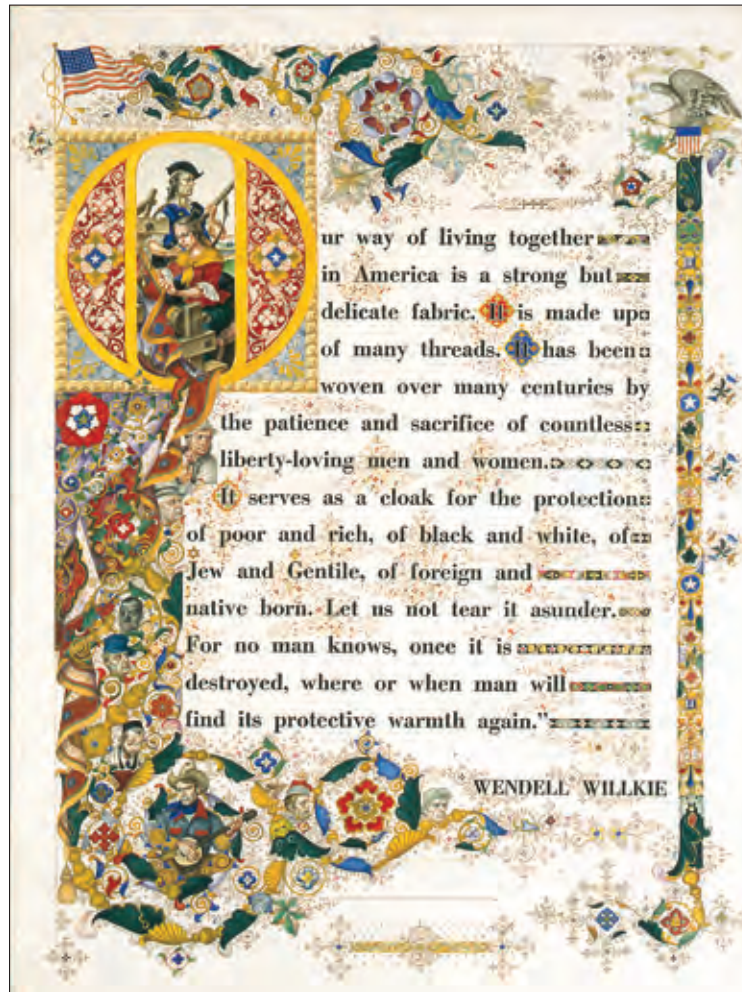 Our way of living together
in America is a strong but
delicate fabric. It is made up
of many threads. It has been
woven over many centuries by
the patience and sacrifice of countless
liberty-loving men and women.
It serves as a cloak for the protection
of poor and rich, of black and white, of
Jew and Gentile, of foreign and
native born. Let us not tear it asunder.
For no man knows, once it is
destroyed, where or when man will
find its protective warmth again."
WENDELL WILLKIE